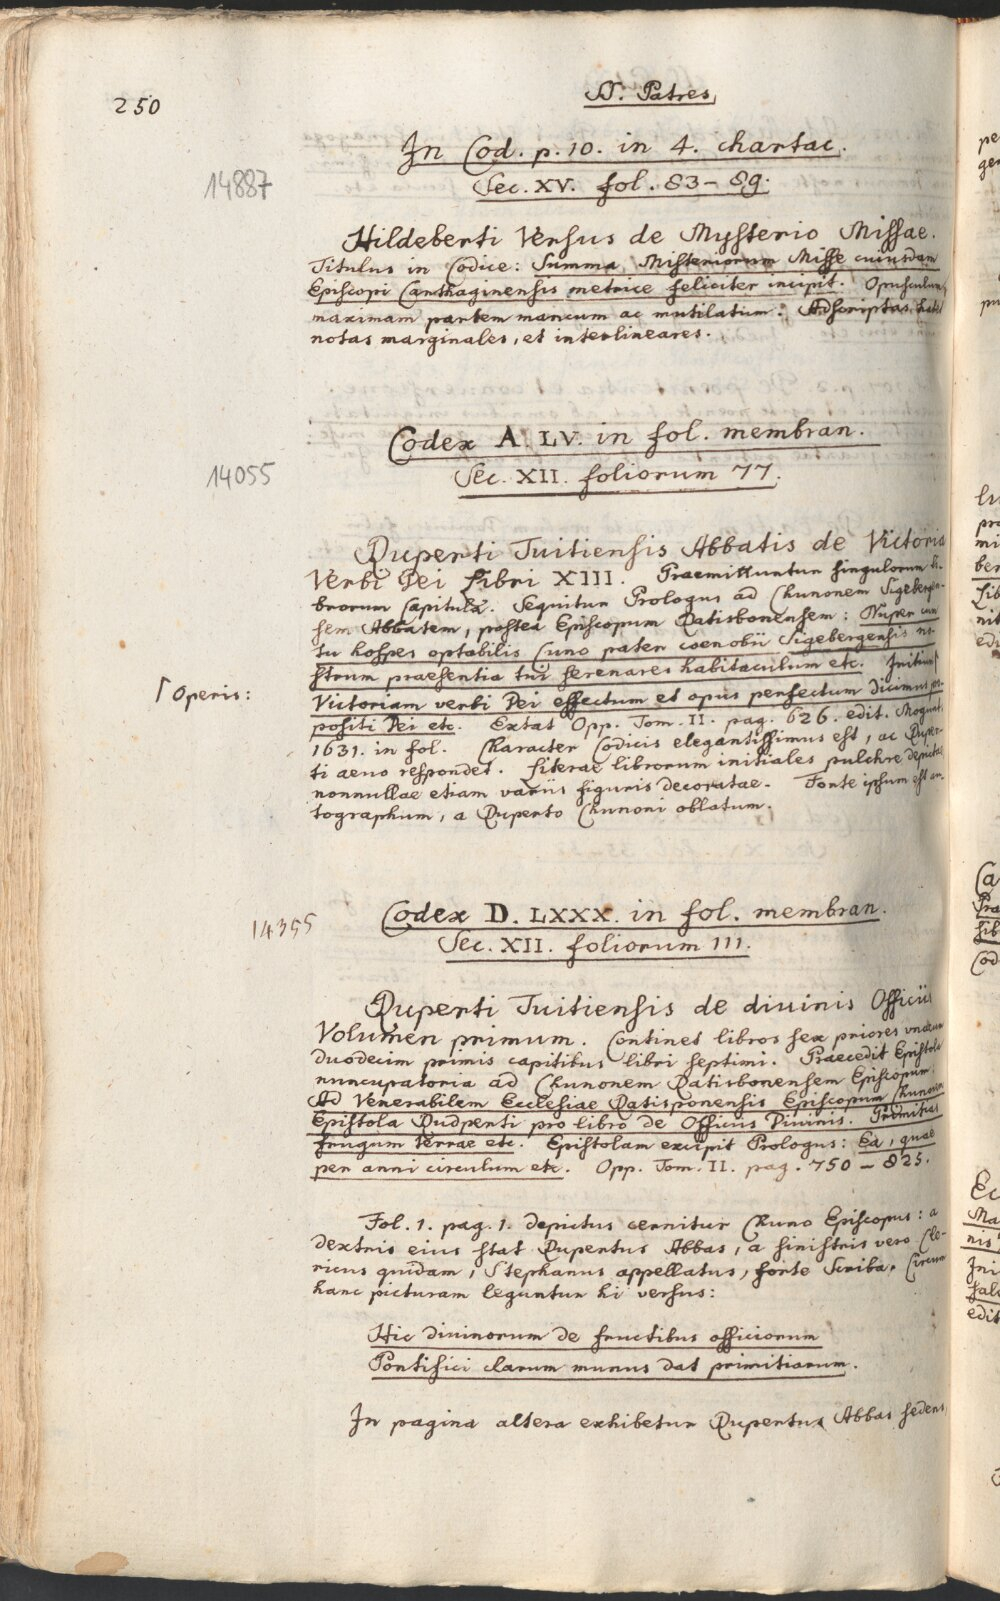 250
SS. Patres
In Cod. p. 10. in 4. chartac.
14887
Sec. XV. fol. 83-89.
Hildeberti Versus de Mysterio Missae.
Titulus in Codice: Summa Misteriorum Misse cuiusdam
Episcopi Carthaginensis metrice feliciter incipit. Opusculum
maximam partem mancum ac mutilatum. Adscriptas habet
notas marginales, et interlineares.
Codex A. LV. in fol. membran.
14055
Sec. XII. foliorum 77.
Ruperti Tuitiensis Abbatis de Victoria
Verbi Dei Libri XIII. Praemittuntur singulorum li-
brorum Capitula. Sequitur Prologus ad Chunonem Sigebergen-
sem Abbatem, postea Episcopum Ratisbonensem: Nuper cum
tu hospes optabilis Cuno pater coenobii Sigebergensis no-
strum praesentia tui serenares habitaculum etc. Initium
⌈ Operis:
Victoriam verbi Dei effectum et opus perfectum dicimus pro-
positi Dei etc. Extat Opp. Tom. II. pag. 626. edit. Mogunt.
1631. in fol. Character Codicis elegantissimus est, ac Ruper-
ti aevo respondet. Literae librorum initiales pulchre depictae
nonnullae etiam variis figuris decoratae. Forte ipsum est au-
tographum, a Ruperto Chunoni oblatum.
14355
Codex D. LXXX. in fol. membran.
Sec. XII. foliorum 111.
Ruperti Tuitiensis de divinis Officiis
Volumen primum. Continet libros sex priores una cum
duodecim primis capitibus libri septimi. Praecedit Epistola
nuncupatoria ad Chunonem Ratisbonensem Episcopum.
Ad Venerabilem Ecclesiae Ratisponensis Episcopum Chunonem
Epistola Rudperti pro libro de Officiis Divinis. Primitias
frugum terrae etc. Epistolam excipit Prologus: Ea, quae
per anni circulum etc. Opp. Tom. II. pag. 750-825.
Fol. 1. pag. 1. depictus cernitur Chuno Episcopus: a
dextris eius stat Rupertus Abbas, a sinistris vero Cle-
ricus quidam, Stephanus appellatus, forte Scriba. Circum
hanc picturam leguntur hi versus:
Hic divinorum de fructibus officiorum
Pontifici clarum munus dat primitiarum.
In pagina altera exhibetur Rupertus Abbas sedens